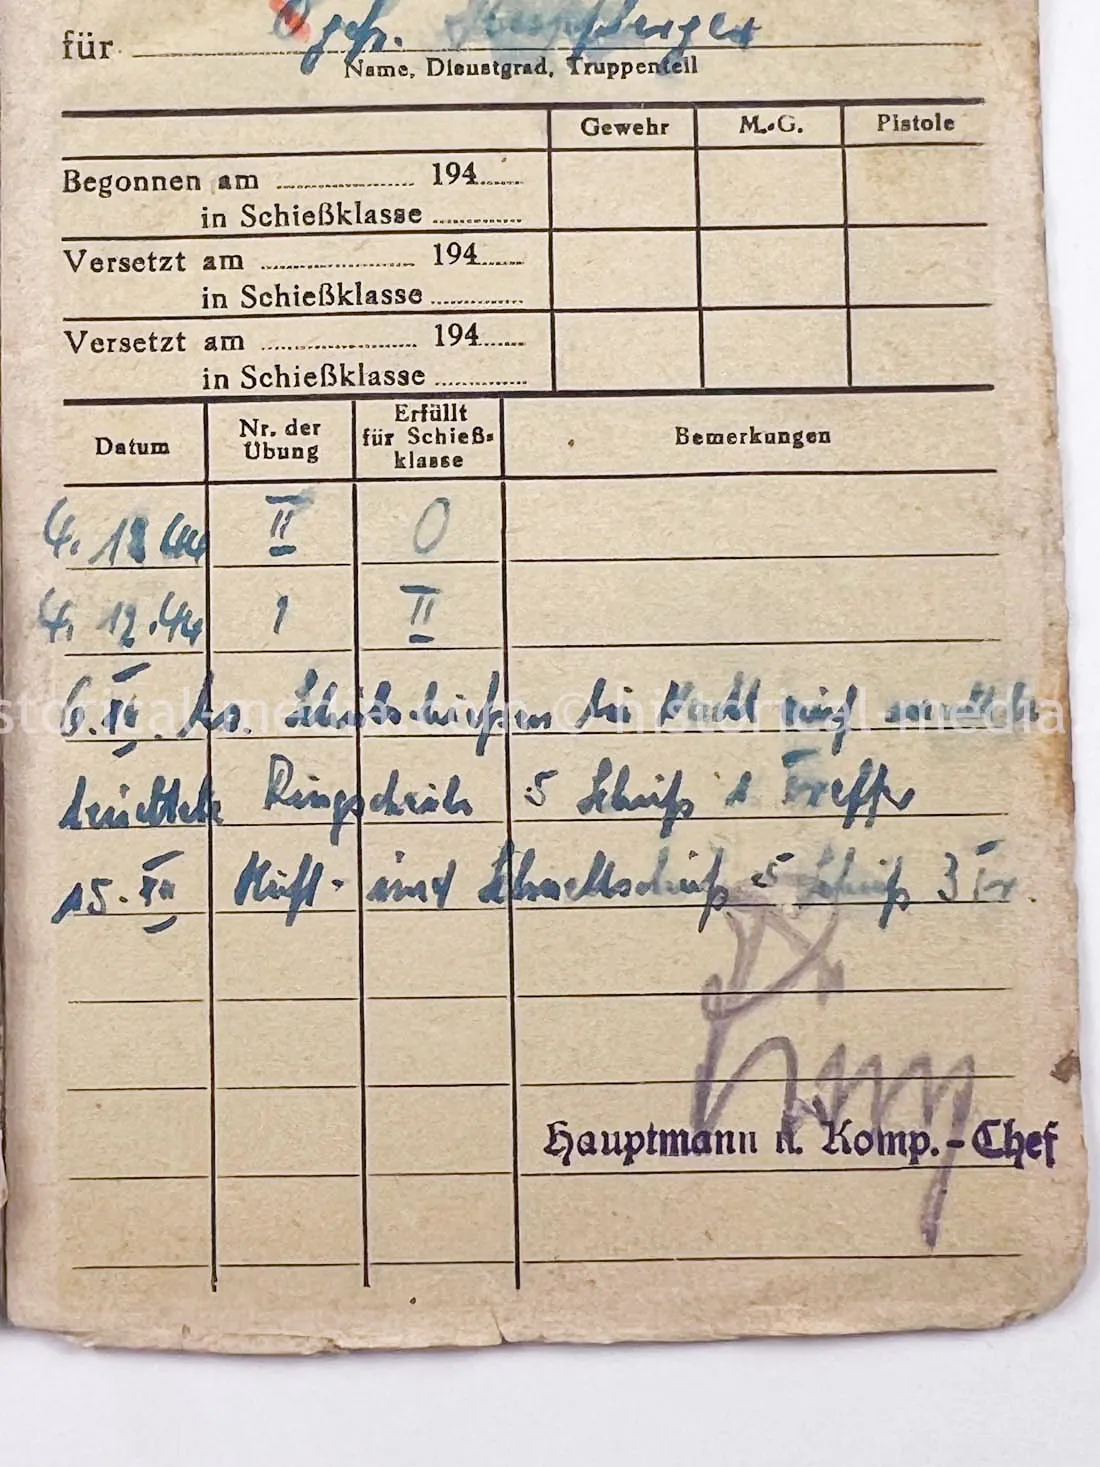 für Ogefr.
Name, Dienstgrad, Truppenteil
Gewehr M.-G. Pistole
Begonnen am ............ 194......
in Schießklasse ............
Versetzt am ............ 194......
in Schießklasse ............
Versetzt am ............ 194......
in Schießklasse ............
Datum Nr. der Übung Erfüllt für Schieß-klasse Bemerkungen
4. 12 44 II 0
4. 12. 44 1 II
6. XII. Schulschießen bei Nacht auf
Ringscheibe 5 Schuß 1 Treffer
15. XII Hüft- und Schnellschuß 5 Schuß 3 Tr.
historical-media.com © historical-media
Hauptmann u. Komp.-Chef